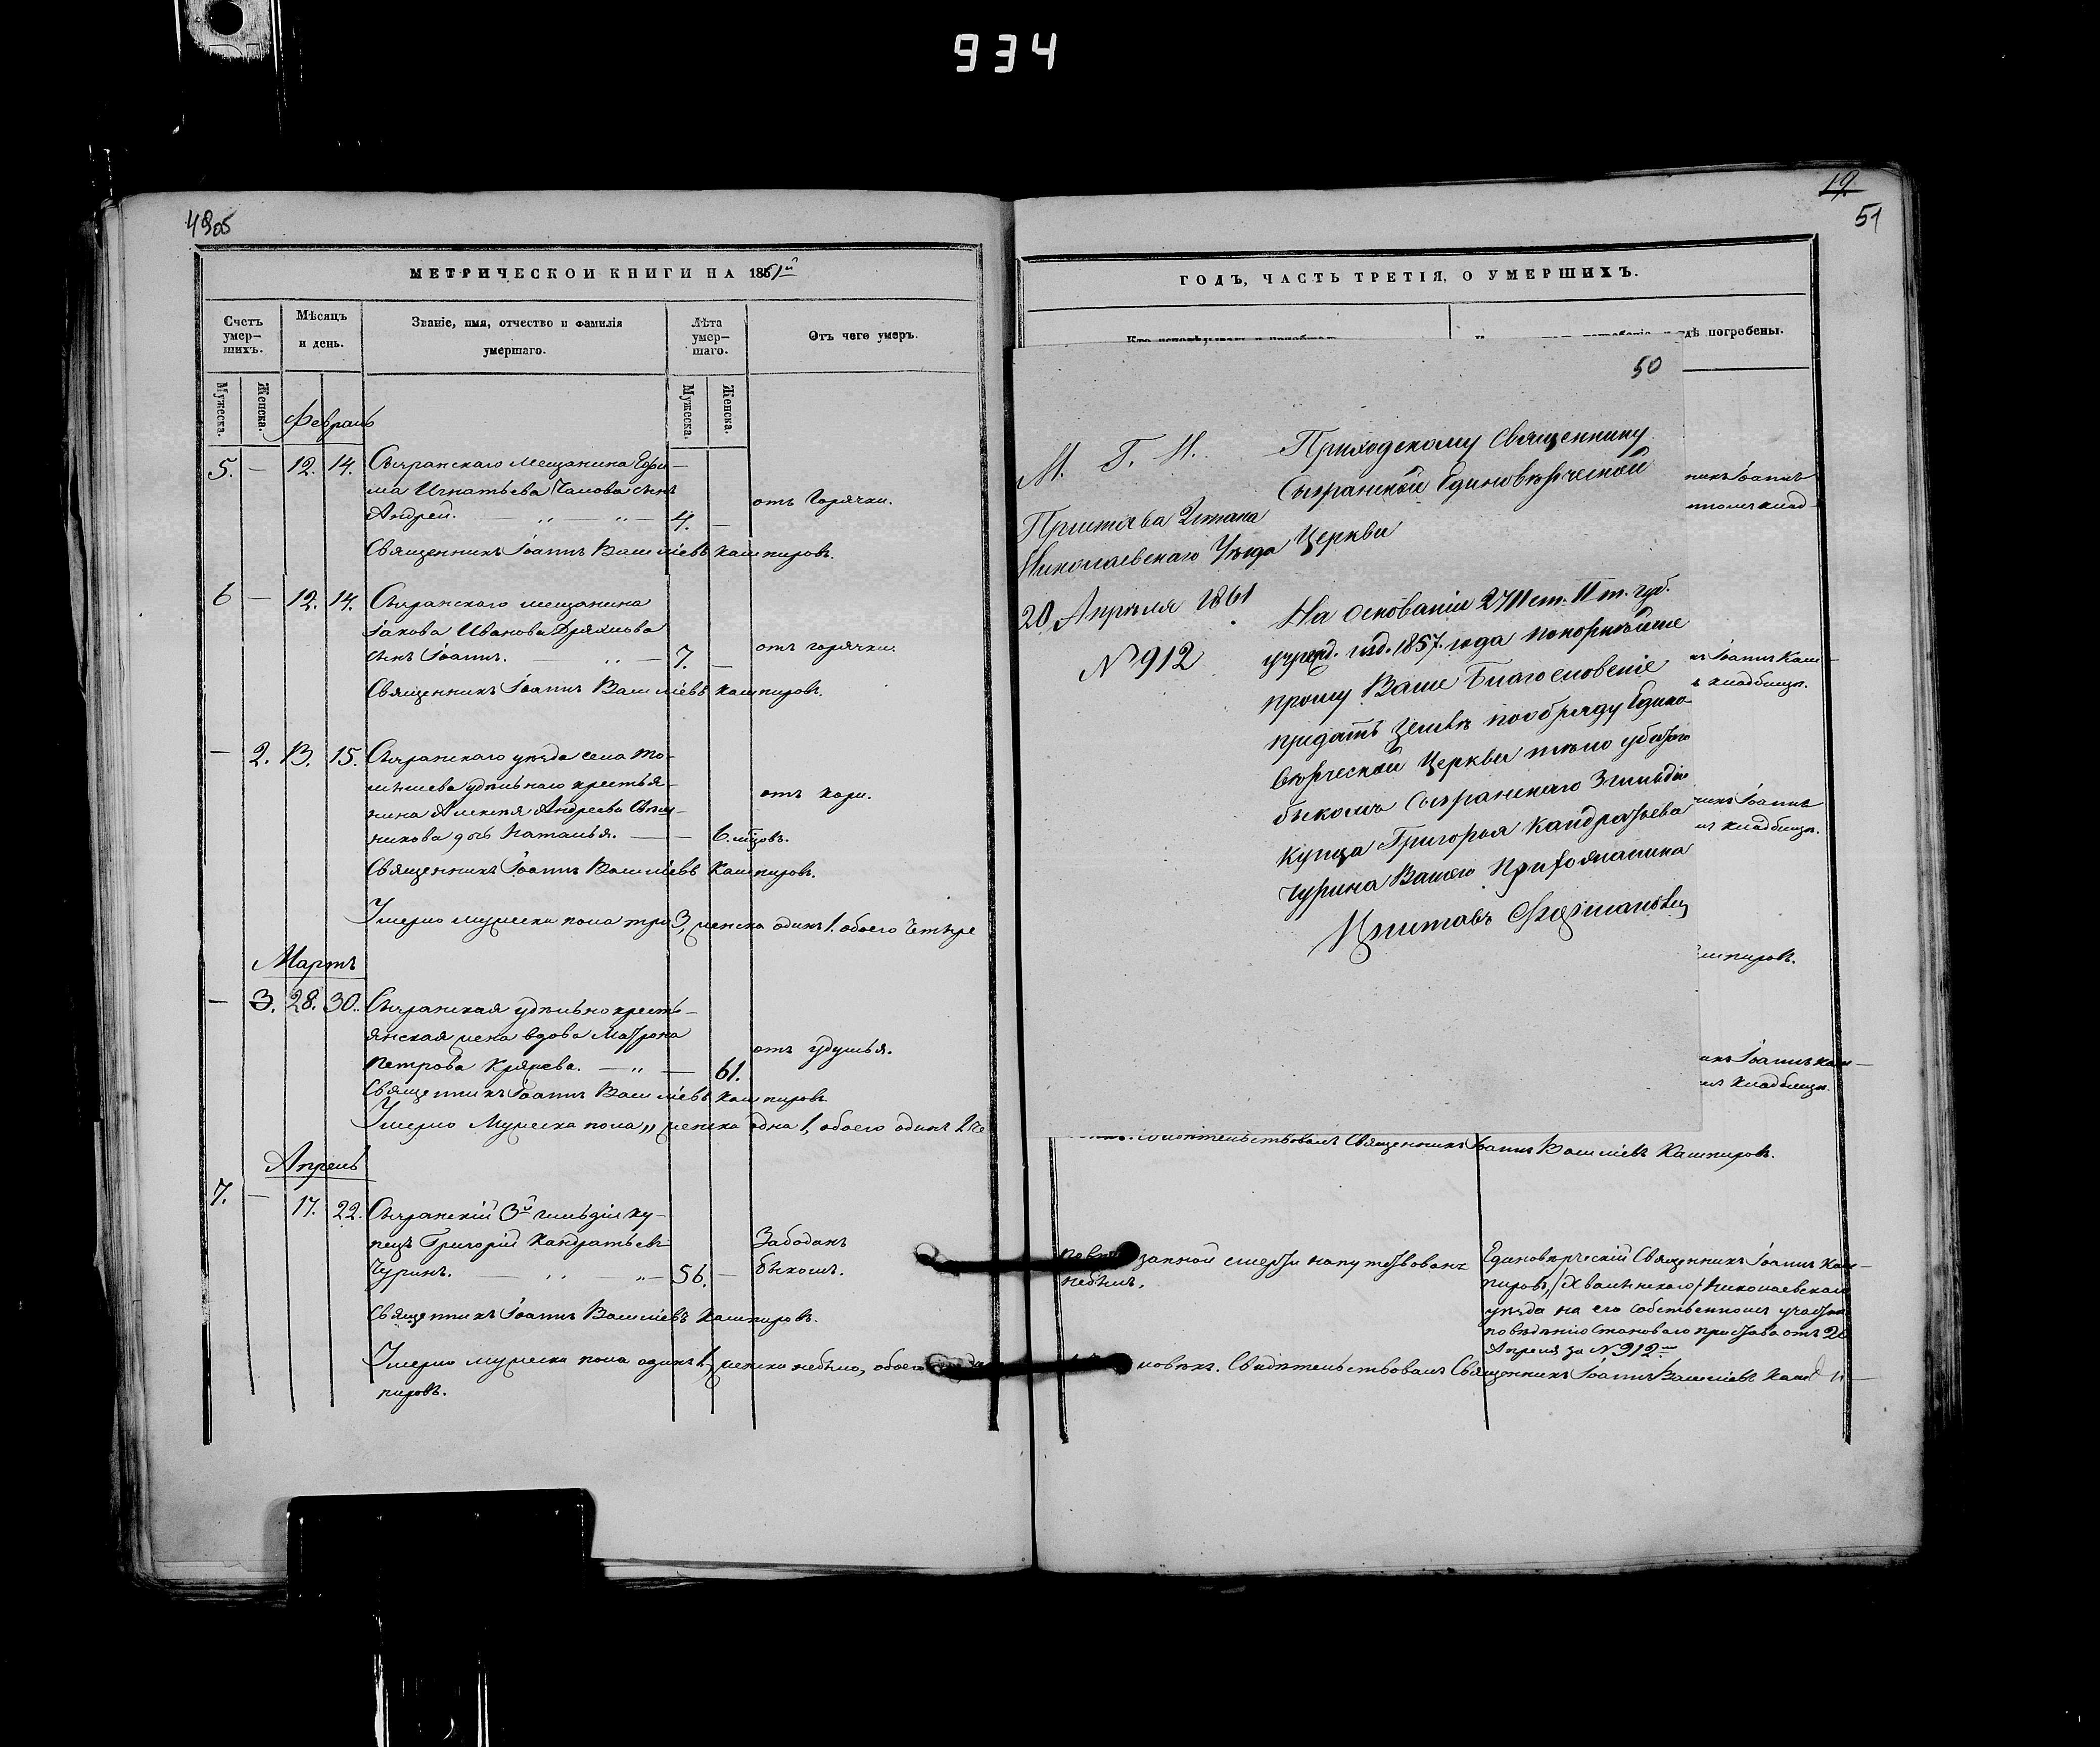 934
49об
МЕТРИЧЕСКОИ КНИГИ НА 1861й
Счетъ умер-шихъ.
Мѣсяцъ и день.
Званіе, имя, отчество и фамилія умершаго.
Лѣта умер-шаго.
Отъ чего умеръ.
Мужеска.
Женска.
Мужеска.
Женска.
Февраль
5. — 12. 14. Сызранскаго мещанина Ефи-
ма Игнатьева Чамова сынъ
Андрей. — 4. — отъ Горячки.
Священникъ Іоаннъ Васильевъ Кашпировъ.
6 — 12. 14. Сызранскаго мещанина
Іакова Иванова Дряхлова
сынъ Іоаннъ. — 7. — отъ горячки.
Священникъ Іоаннъ Васильевъ Кашпировъ.
— 2. 13. 15. Сызранскаго уѣзда села
удѣльнаго крестья-
нина Алексѣя Андреева
дочь Наталья. — 6. отъ кори.
Священникъ Іоаннъ Васильевъ Кашпировъ.
Умерло мужеска пола три 3, женска одинъ 1. обоего четыре
Мартъ
— 3. 28. 30. Сызранская удѣльно кресть-
янская жена вдова Матрона
Петрова — 61. отъ удушья.
Священникъ Іоаннъ Васильевъ Кашпировъ
Умерло Мужеска пола „ женска одна 1, обоего одинъ 1 че
Апрель
7. — 17. 22. Сызранскій 3й гильдіи ку-
пецъ Григорій Кандратьевъ
Чуринъ. — 56. — Забоданъ быкомъ.
Священникъ Іоаннъ Васильевъ Кашпировъ.
Умерло мужеска пола одинъ 1, женска небыло, обоего
пировъ.
19.
51
ГОДЪ, ЧАСТЬ ТРЕТІЯ, О УМЕРШИХЪ.
погребены.
50
М. Г. И.
Пристава 2 стана
Николаевскаго Уѣзда
20 Апрѣля 1861
№ 912
Приходскому Священнику
Сызранской Единовѣрческой
Церкви
На основаніи 2711 ст. II т. губ.
учрежд. изд. 1857. года покорнѣйше
прошу Ваше Благословеніе
предать землѣ по обряду Едино-
вѣрческой Церкви тѣло убитаго
быкомъ Сызранскаго 3 гильдіи
купца Григорья Кандратьева
Чурина Вашего Прихожанина
Приставъ
никъ Іоаннъ
клад-
ъ Іоаннъ Каш-
ъ кладбищѣ.
никъ Іоаннъ
кладбищѣ.
шпировъ.
икъ Іоаннъ Каш-
кладбищѣ.
свидѣтельствовалъ Священникъ Іоаннъ Васильевъ Кашпировъ.
запной смерти напутствованъ
небылъ.
Единовѣрческій Священникъ Іоаннъ Каш-
пировъ, /Хвалынскаго/ Николаевскаго
уѣзда на его собственномъ участкѣ
по вѣдѣнію становаго пристава отъ 20
Апреля за № 912.
ловѣкъ. Свидѣтельствовалъ Священникъ Іоаннъ Васильевъ Каш